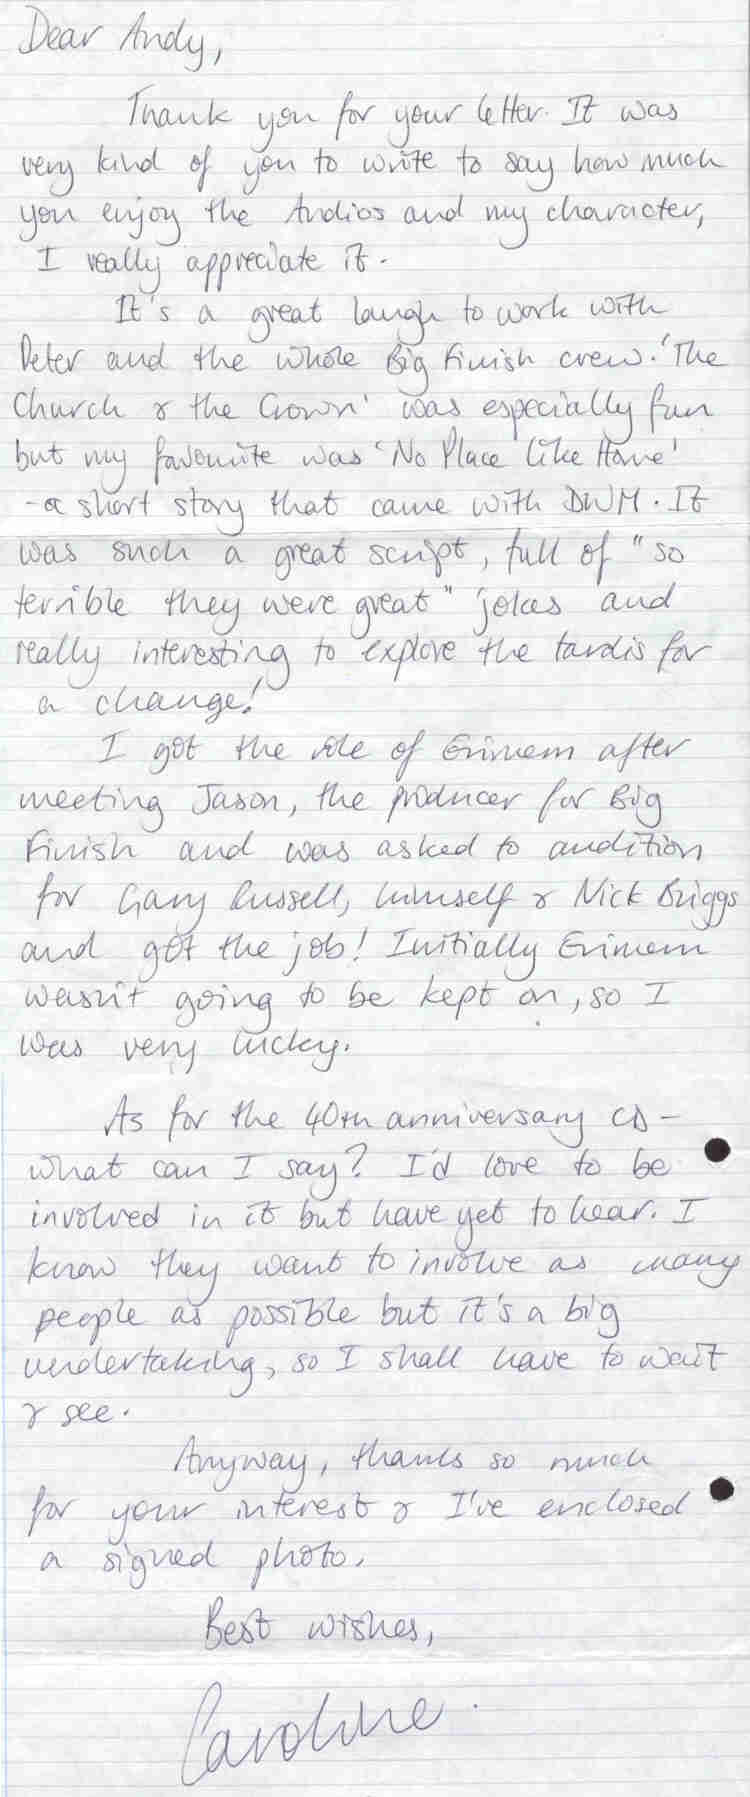 Dear Andy,
Thank you for your letter. It was
very kind of you to write to say how much
you enjoy the Audios and my character,
I really appreciate it.
It's a great laugh to work with
Peter and the whole Big Finish crew. 'The
Church & the Crown' was especially fun
but my favourite was 'No Place Like Home'
- a short story that came with DWM. It
was such a great script, full of "so
terrible they were great" jokes and
really interesting to explore the tardis for
a change!
I got the role of Erimem after
meeting Jason, the producer for Big
Finish and was asked to audition
for Gary Russell, himself & Nick Briggs
and got the job! Initially Erimem
wasn't going to be kept on, so I
was very lucky.
As for the 40th anniversary CD -
what can I say? I'd love to be
involved in it but have yet to hear. I
know they want to involve as many
people as possible but it's a big
undertaking, so I shall have to wait
& see.
Anyway, thanks so much
for your interest & I've enclosed
a signed photo.
Best wishes,
Caroline.